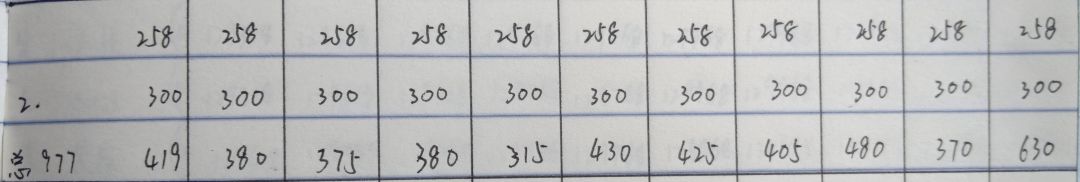 258 258 258 258 258 258 258 258 258 258 258
2. 300 300 300 300 300 300 300 300 300 300 300
总 977 419 380 375 380 315 430 425 405 480 370 630